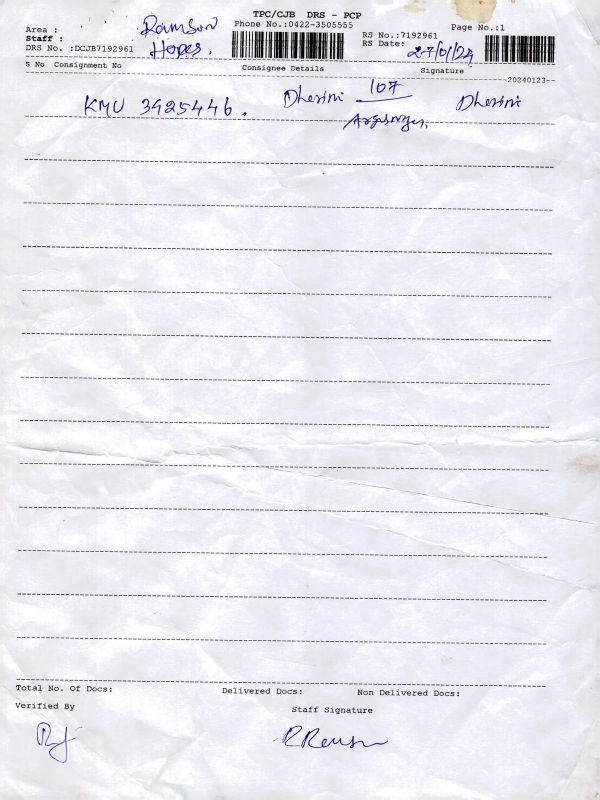 TPC/CJB DRS - PCP
Area : Ramson Phone No.:0422-3505555 Page No.:1
Staff : Hopes. RS No.:7192961
DRS No. :DCJB7192961 RS Date: 27/01/24
S No Consignment No Consignee Details Signature
20240123--
KMU 3925446. Dharini 107 Dharini
Total No. Of Docs: Delivered Docs: Non Delivered Docs:
Verified By Staff Signature